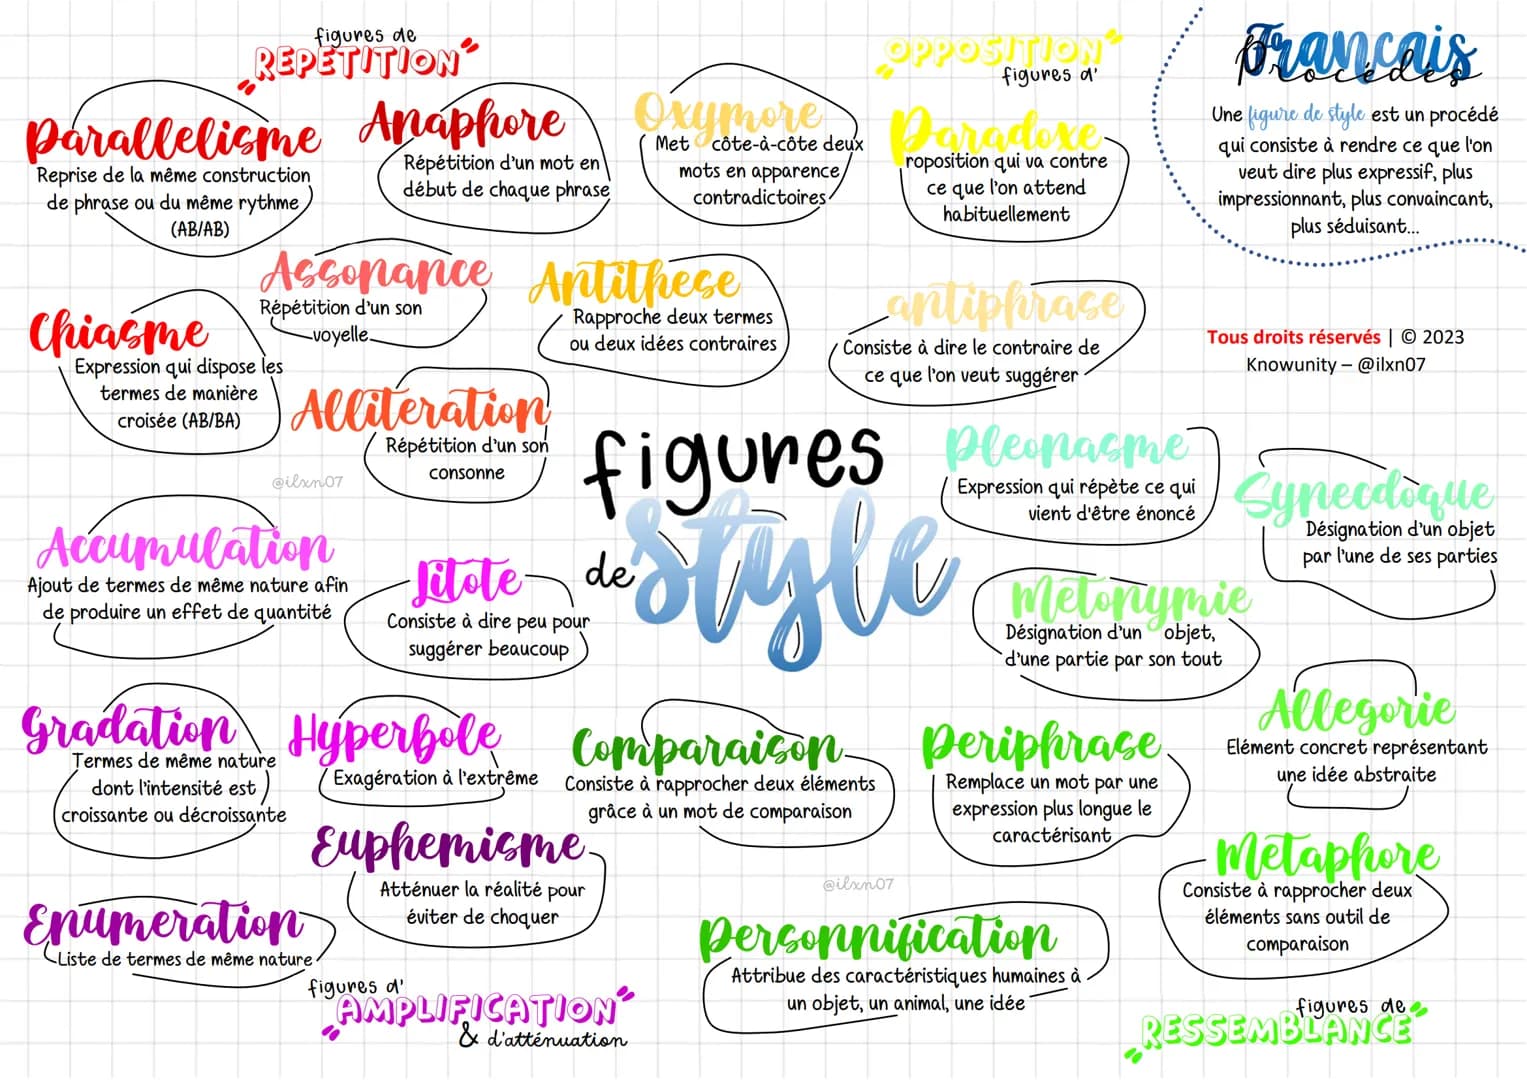 figures de
"REPETITION"
Parallelisme
Reprise de la même construction
de phrase ou du même rythme
(AB/AB)
Anaphore
Répétition d'un mot en
début de chaque phrase
Assonance
Répétition d'un son
voyelle
Chiasme
Expression qui dispose les
termes de manière
croisée (AB/BA)
Alliteration
Répétition d'un son
consonne
@ilxn07
"OPPOSITION"
figures d'
Oxymore
Met côte-à-côte deux
mots en apparence
contradictoires
Paradoxe
roposition qui va contre
ce que l'on attend
habituellement
Antithese
Rapproche deux termes
ou deux idées contraires
antiphrase
Consiste à dire le contraire de
ce que l'on veut suggérer
Francais
procédés
Une figure de style est un procédé
qui consiste à rendre ce que l'on
veut dire plus expressif, plus
impressionnant, plus convaincant,
plus séduisant...
Tous droits réservés | © 2023
Knowunity – @ilxn07
figures
de style
Accumulation
Ajout de termes de même nature afin
de produire un effet de quantité
Litote
Consiste à dire peu pour
suggérer beaucoup
Gradation
Termes de même nature
dont l'intensité est
croissante ou décroissante
Hyperbole
Exagération à l'extrême
Euphemisme
Atténuer la réalité pour
éviter de choquer
Enumeration
Liste de termes de même nature
figures d'
"AMPLIFICATION"
& d'atténuation
Pleonasme
Expression qui répète ce qui
vient d'être énoncé
Synecdoque
Désignation d'un objet
par l'une de ses parties
Metonymie
Désignation d'un objet,
d'une partie par son tout
Allegorie
Elément concret représentant
une idée abstraite
Comparaison
Consiste à rapprocher deux éléments
grâce à un mot de comparaison
Periphrase
Remplace un mot par une
expression plus longue le
caractérisant
Metaphore
Consiste à rapprocher deux
éléments sans outil de
comparaison
@ilxn07
Personnification
Attribue des caractéristiques humaines à
un objet, un animal, une idée
figures de
"RESSEMBLANCE"